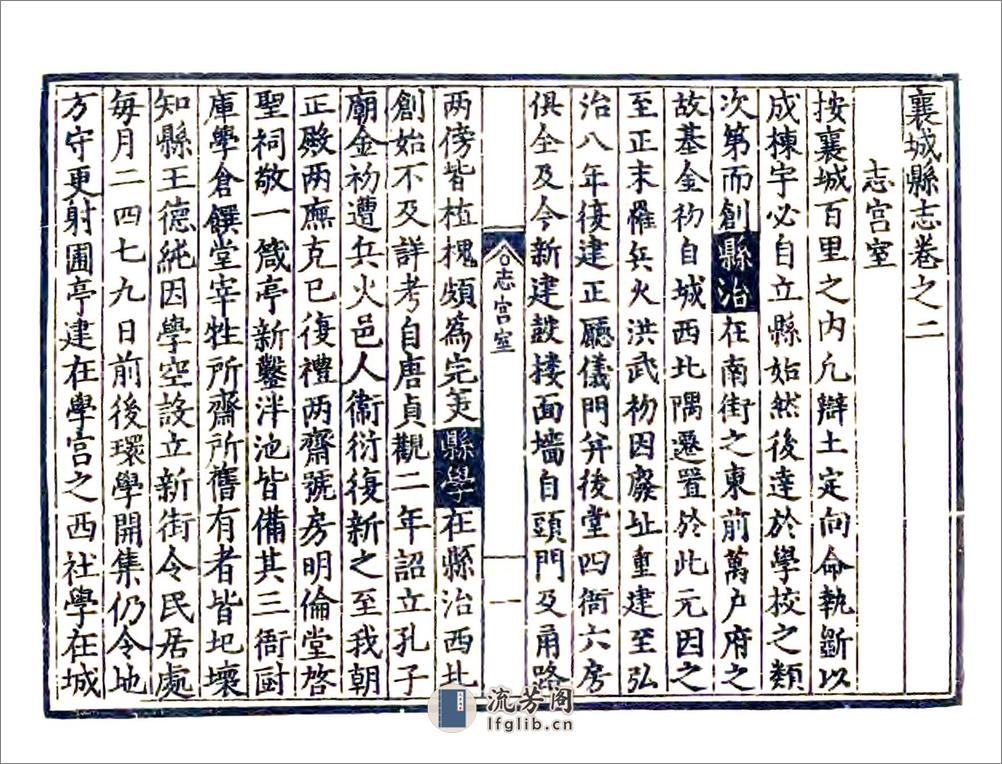 襄城縣志卷之二
志宫室
按襄城百里之内凢辯土定向命執斵以
成棟宇必自立縣始然後達於學校之類
次第而創縣治在南街之東前萬户府之
故基金初自城西北隅遷置於此元因之
至正末罹兵火洪武初因廢址重建至弘
治八年復建正廳儀門并後堂四衙六房
俱全及今新建鼓楼面墻自頭門及甬路
志宫室
一
两傍皆植槐頗為完美縣學在縣治西北
創始不及詳考自唐貞觀二年詔立孔子
廟金初遭兵火邑人衞衍復新之至我朝
正殿两廡克已復禮两齋號房明倫堂啓
聖祠敬一箴亭新鑿泮池皆備其三衙厨
庫學倉饌堂宰牲所齋所舊有者皆圮壞
知縣王德純因學空設立新街令民居處
每月二四七九日前後環學開集仍令地
方守更射圃亭建在學宫之西社學在城
流芳阁
lfglib.cn